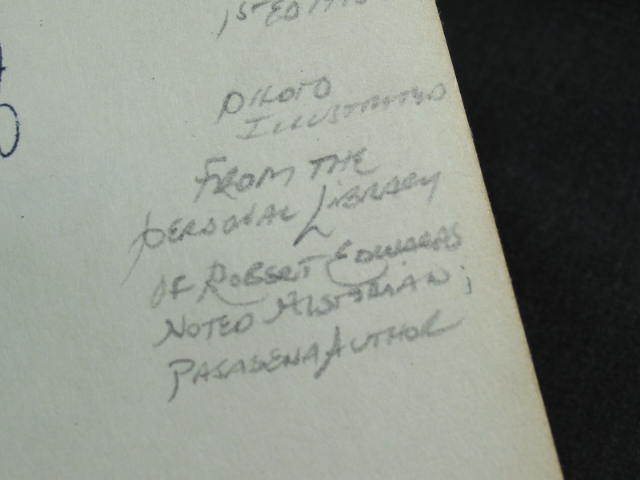 1ST ED
PHOTO
ILLUSTRATED
FROM THE
PERSONAL LIBRARY
OF ROBERT EDWARDS
NOTED HISTORIAN;
PASADENA AUTHOR